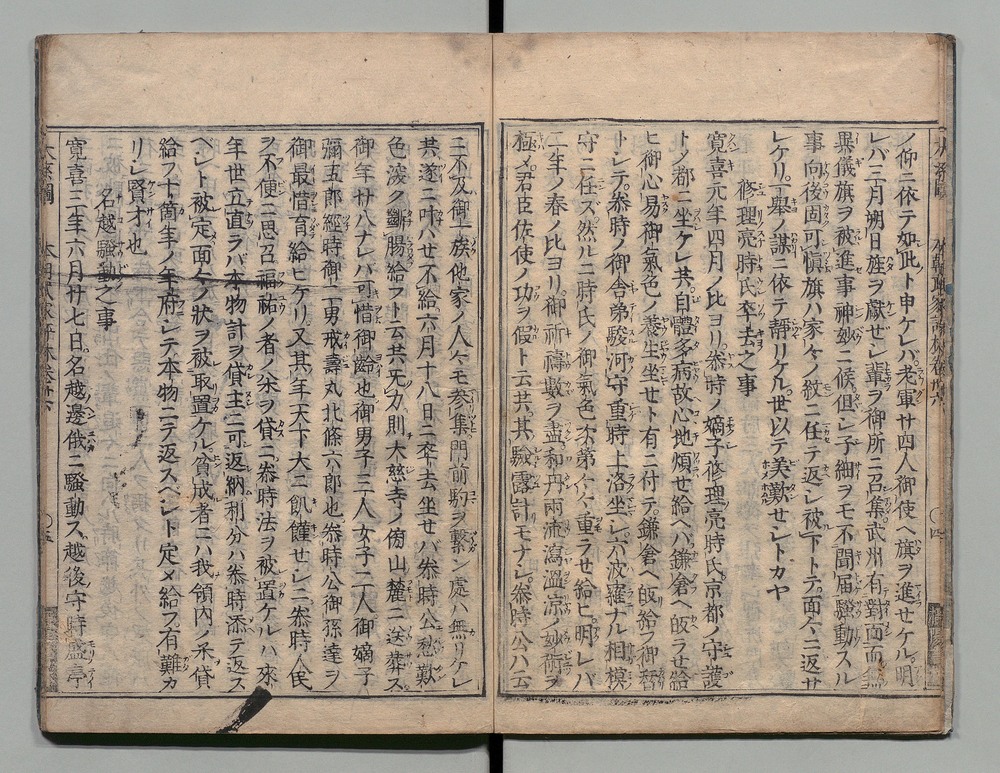 ノ仰ニ依テ如此ト申ケレバ老軍廿四人御使ヘ旗ヲ進セケル明
レバ三月朔日旌ヲ獻ゼシ輩ヲ御所ニ召集武州有對面而無
異儀旗ヲ被進事神妙ニ候但シ子細ヲモ不聞届騷動スル
事向後固可愼旗ハ家々ノ紋ニ任テ返シ被下トテ面々ニ返サ
レケリ一舉ノ謀ニ依テ靜リケル世以テ美歎セシトカヤ
修理亮時氏卒去之事
寛喜元年四月ノ比ヨリ泰時ノ嫡子修理亮時氏京都ノ守護
トノ都ニ坐ケレ共自體多病故心地煩せ給ヘバ鎌倉ヘ皈ラせ給
ヒ御心易御氣色ノ養生坐せト有ニ付テ鎌倉ヘ皈給フ御替
トシテ泰時ノ御舎弟駿河守重時上洛坐シ六波羅ナル相模
守ニ任ズ然ルニ時氏ノ御氣色次第々々ニ重ラせ給ヒ明レバ
二年ノ春ノ比ヨリ御祈禱數ヲ盡和丹兩流瀉温凉ノ妙術ヲ
極メ君臣佐使ノ功ヲ假ト云共其驗露計モナシ泰時公ハ云
ニ不及御一族他家ノ人々モ參集門前駒ヲ繋ン處ハ無リケレ
共遂ニ叶ハせ不給六月十八日ニ卒去坐せバ泰時公愁歎ノ
色深ク斷腸給フト云共无力則大慈寺ノ傍山麓ニ送葬ス
御年廿八ナレバ可惜御齡也御男子三人女子二人御嫡子
彌五郎經時御二男戒壽丸北條六郎也泰時公御孫達ヲ
御最惜育給ヒケリ又其年天下大ニ飢饉せシニ泰時人民
ヲ不便ニ思召福祐ノ者ノ米ヲ貸ニ泰時法ヲ被置ケルハ來
年世立直ラバ本物計ヲ貸主ニ可返納利分ハ泰時添テ返ス
ベシト被定面々ノ狀ヲ被取置ケル貧成者ニハ我領内ノ米貸
給フ十箇年ノ年府ニシテ本物ニテ返スベシト定メ給フ有難カ
リシ賢才也
名越騷動之事
寛喜三年六月廿七日名越邊俄ニ騷動ス越後守時盛亭